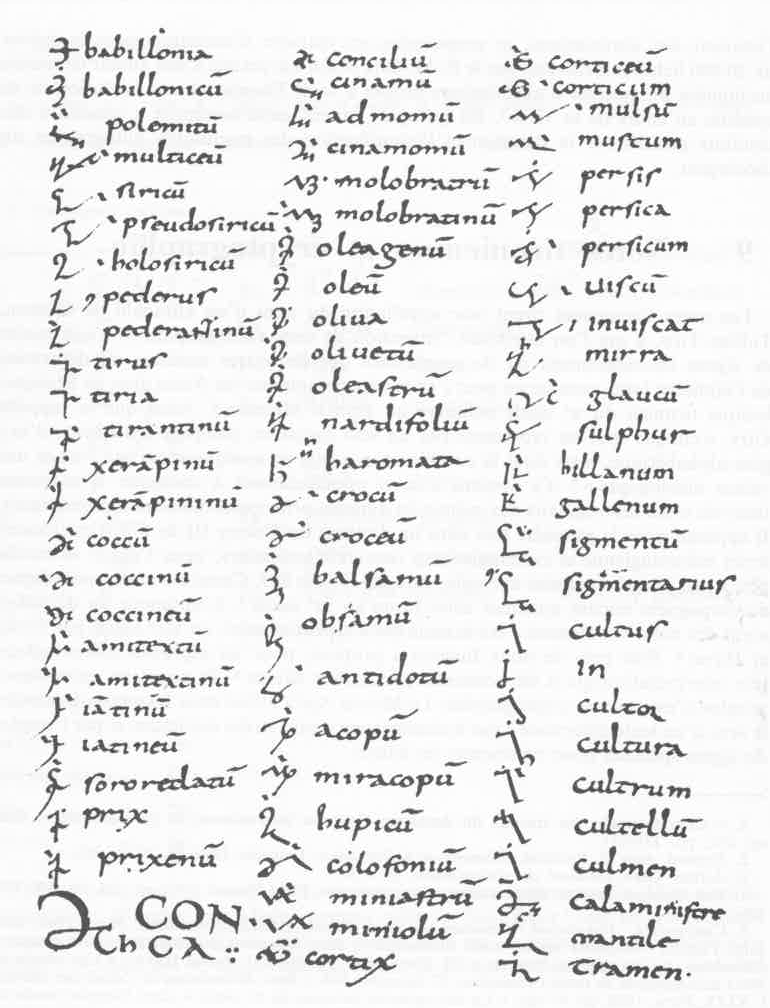 babillonia
babillonicū
polemitū
multiceū
siricū
pseudosiricū
holosiricū
pederus
tirus
tiria
tirantinū
xerāpinū
xerāpininū
coccū
coccinū
coccineū
amitextū
amitextinū
iatinū
iatineū
sororedatū
prix
prixenū
CON
conciliū
cinamū
admomū
cinamomū
molobratrū
molobratinū
oleagenū
oleū
oliva
olivetū
oleastrū
nardifoliū
haromata
crocū
croceū
balsamū
obsamū
antidotū
acopū
miracopū
hupicū
colofoniū
miniastrū
miniolū
cortix
corticeū
corticium
mulsa
mustum
persis
persica
persicum
viscū
inviscat
mirra
glaucū
sulphur
billanum
gallenum
sigmentū
sigmentarius
cultus
in
cultor
cultura
cultrum
cultellū
culmen
mantile
tramen.